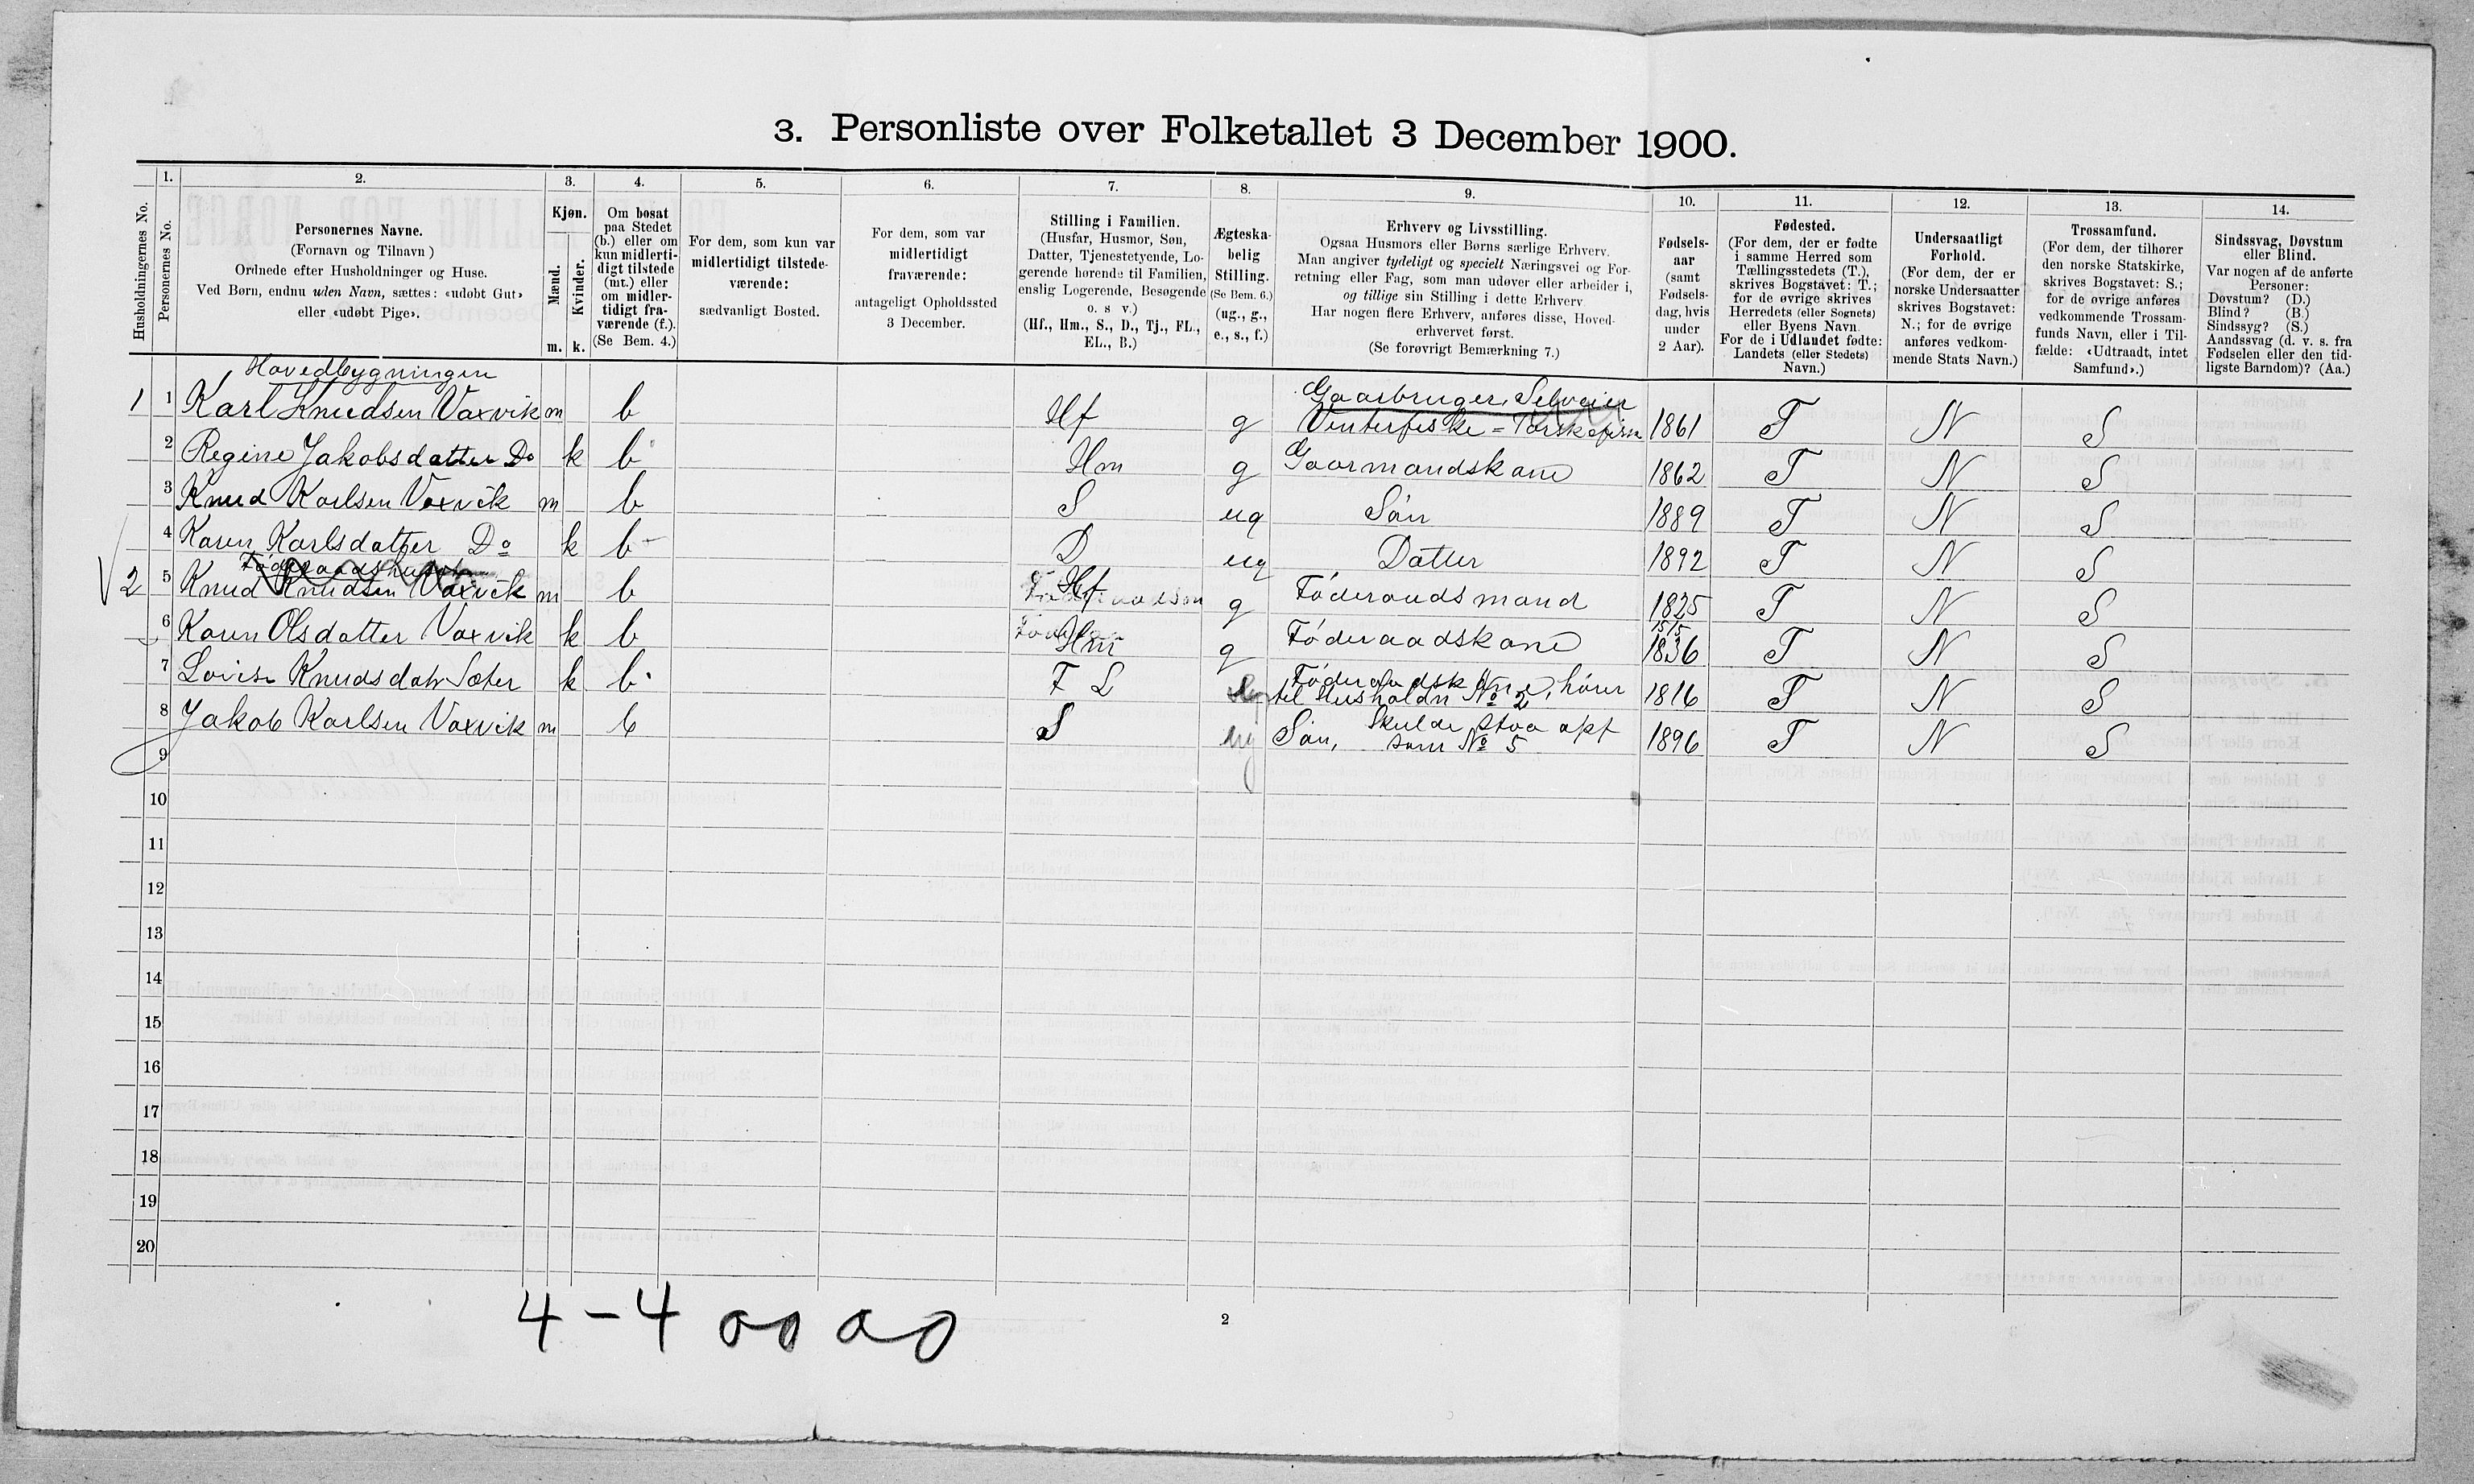 3. Personliste over Folketallet 3 December 1900.
1. 2. 3. 4. 5. 6. 7. 8. 9. 10. 11. 12. 13. 14.
Husholdningernes No.
Personernes No.
Personernes Navne.
(Fornavn og Tilnavn)
Ordnede efter Husholdninger og Huse.
Ved Børn, endnu uden Navn, sættes: «udøbt Gut»
eller «udøbt Pige».
Kjøn.
Mænd.
Kvinder.
m. k.
Om bosat
paa Stedet
(b.) eller om
kun midlerti-
digt tilstede
(mt.) eller
om midler-
tidigt fra-
værende (f.).
(Se Bem. 4.)
For dem, som kun var
midlertidigt tilstede-
værende:
sædvanligt Bosted.
For dem, som var
midlertidigt
fraværende:
antageligt Opholdssted
3 December.
Stilling i Familien.
(Husfar, Husmor, Søn,
Datter, Tjenestetyende, Lo-
gerende hørende til Familien,
enslig Logerende, Besøgende
o. s v.)
(Hf., Hm., S., D., Tj., FL.,
EL., B.)
Ægteska-
belig
Stilling.
(Se Bem. 6.)
(ug., g.,
e., s., f.)
Erhverv og Livsstilling.
Ogsaa Husmors eller Børns særlige Erhverv.
Man angiver tydeligt og specielt Næringsvei og For-
retning eller Fag, som man udøver eller arbeider i,
og tillige sin Stilling i dette Erhverv.
Har nogen flere Erhverv, anføres disse, Hoved-
erhvervet først.
(Se forøvrigt Bemærkning 7.)
Fødsels-
aar
(samt
Fødsels-
dag, hvis
under
2 Aar).
Fødested.
(For dem, der er fødte
i samme Herred som
Tællingsstedets (T.),
skrives Bogstavet: T.;
for de øvrige skrives
Herredets (eller Sognets)
eller Byens Navn.
For de i Udlandet fødte:
Landets (eller Stedets)
Navn.)
Undersaatligt
Forhold.
(For dem, der er
norske Undersaatter
skrives Bogstavet:
N.; for de øvrige
anføres vedkom-
mende Stats Navn.)
Trossamfund.
(For dem, der tilhører
den norske Statskirke,
skrives Bogstavet: S.;
for de øvrige anføres
vedkommende Trossam-
funds Navn, eller i Til-
fælde: «Udtraadt, intet
Samfund».)
Sindssvag, Døvstum
eller Blind.
Var nogen af de anførte
Personer:
Døvstum? (D.)
Blind? (B.)
Sindssyg? (S.)
Aandssvag (d. v. s. fra
Fødselen eller den tid-
ligste Barndom)? (Aa.)
Hovedbygningen
Gaarbruger, Selveier
1 1 Karl Knudsen Vaxvik m b Hf g Vinterfiske = 1861 T N S
2 Regine Jakobsdatter Do k b Hm g Gaarmandskone 1862 T N S
3 Knud Karlsen Vaxvik m b S ug Søn 1889 T N S
4 Karen Karlsdatter Do k b D ug Datter 1892 T N S
Føderaadshuset
2 5 Knud Knudsen Vaxvik m b Hf g Føderaadsmand 1825 T N S
15/5
6 Karen Olsdatter Vaxvik k b Hm g Føderaadskone 1836 T N S
Føderaadskone, hører
7 Lovise Knudsdatr Sæter k b FL til Husholdn No 2 1816 T N S
Skulde staa opf
8 Jakob Karlsen Vaxvik m b S ug Søn, som No 5 1896 T N S
9
10
11
12
13
14
15
16
17
18
19
20
4-4 00 00
2